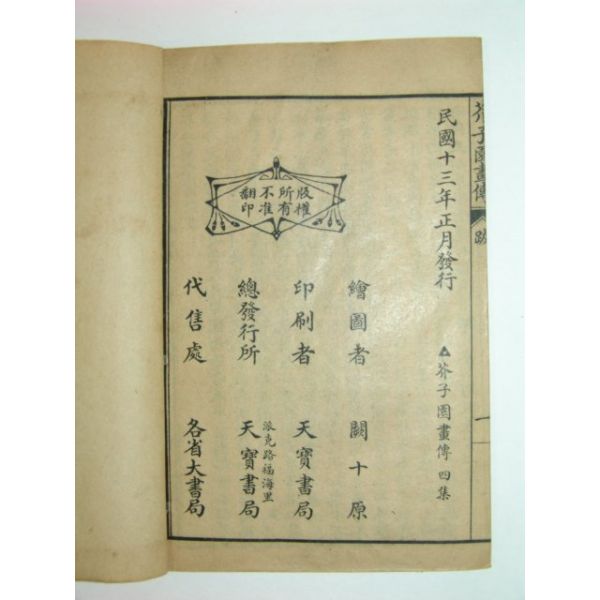 芥子園畫傳
跋
一
民國十三年正月發行
▲芥子園畫傳四集
版權
所有
不准
翻印
繪圖者 闕十原
印刷者 天寶書局
派克路福海里
總發行所 天寶書局
代售處 各省大書局